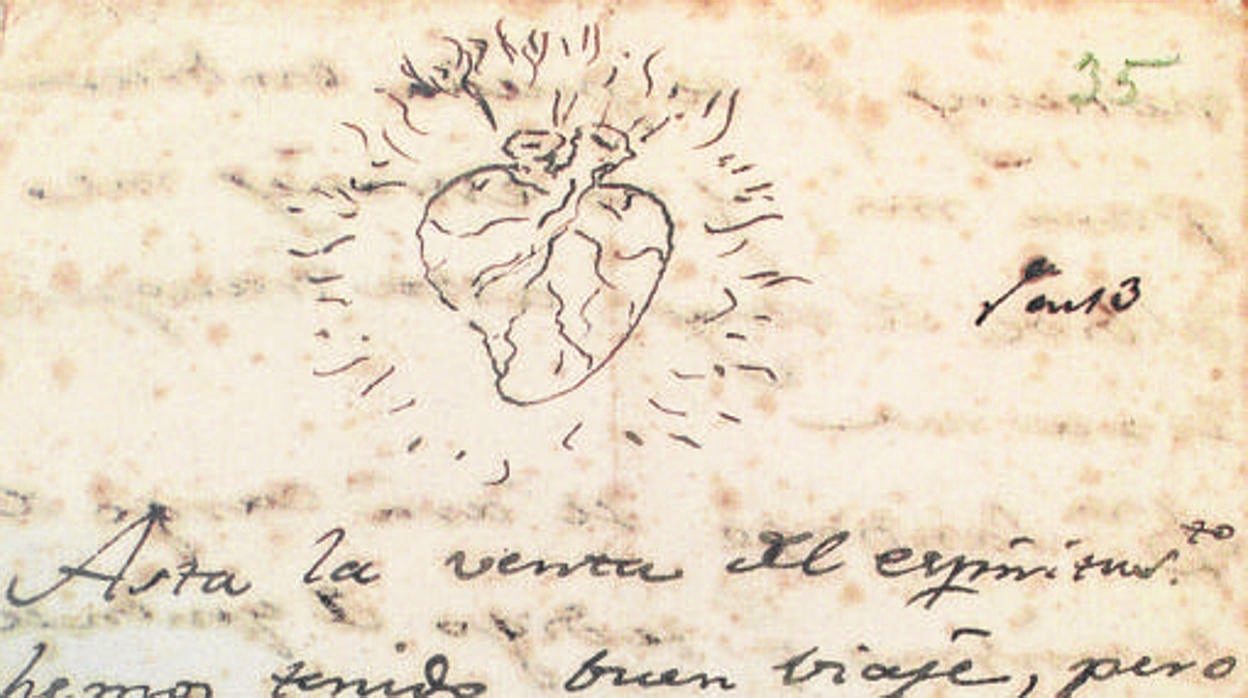 35
Asta la venta del espiritus.to
hemos tenido buen viaje, pero